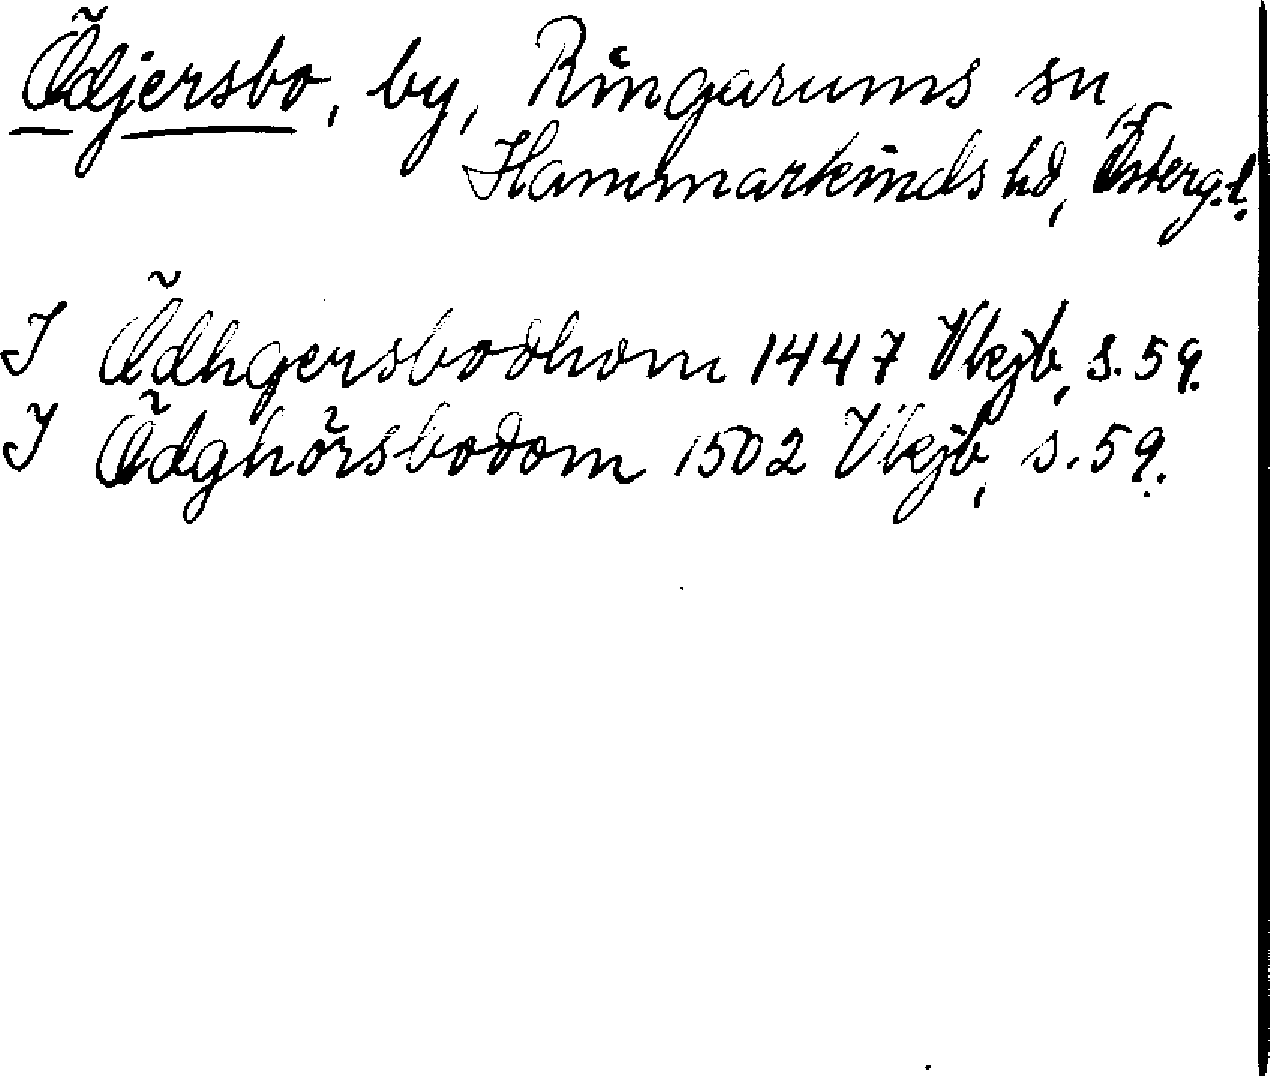 Ödjersbo, by, Ringarums sn,
Hammarkinds hd, Österg.l.
I Ödhgersbodhom 1447 Vkjb, s. 59.
I Ödghörsbodom 1502 Vkjb, s. 59.